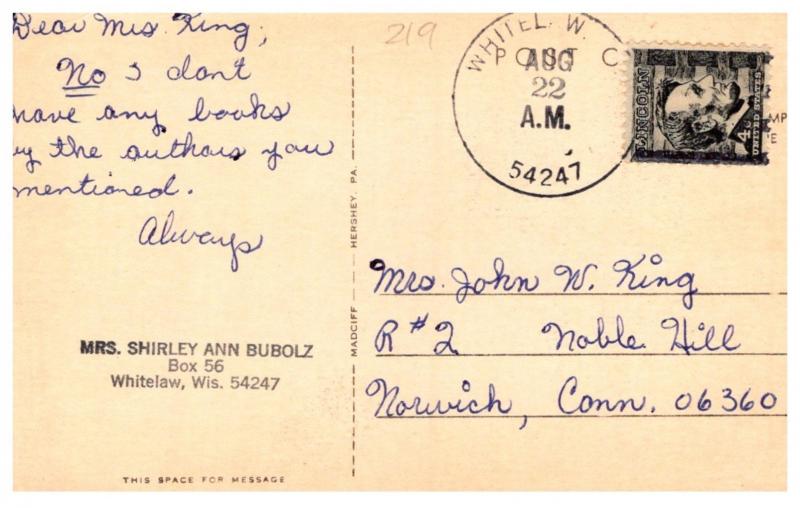 Dear Mrs. King,
No I dont
have any books
by the authors you
mentioned.
Always
MRS. SHIRLEY ANN BUBOLZ
Box 56
Whitelaw, Wis. 54247
THIS SPACE FOR MESSAGE
MADCIFF — HERSHEY, PA.
219
WHITEL W.
POST C
AUG
22
A.M.
54247
LINCOLN
4¢
UNITED STATES
MP
E
Mrs. John W. King
R #2 Noble Hill
Norwich, Conn. 06360